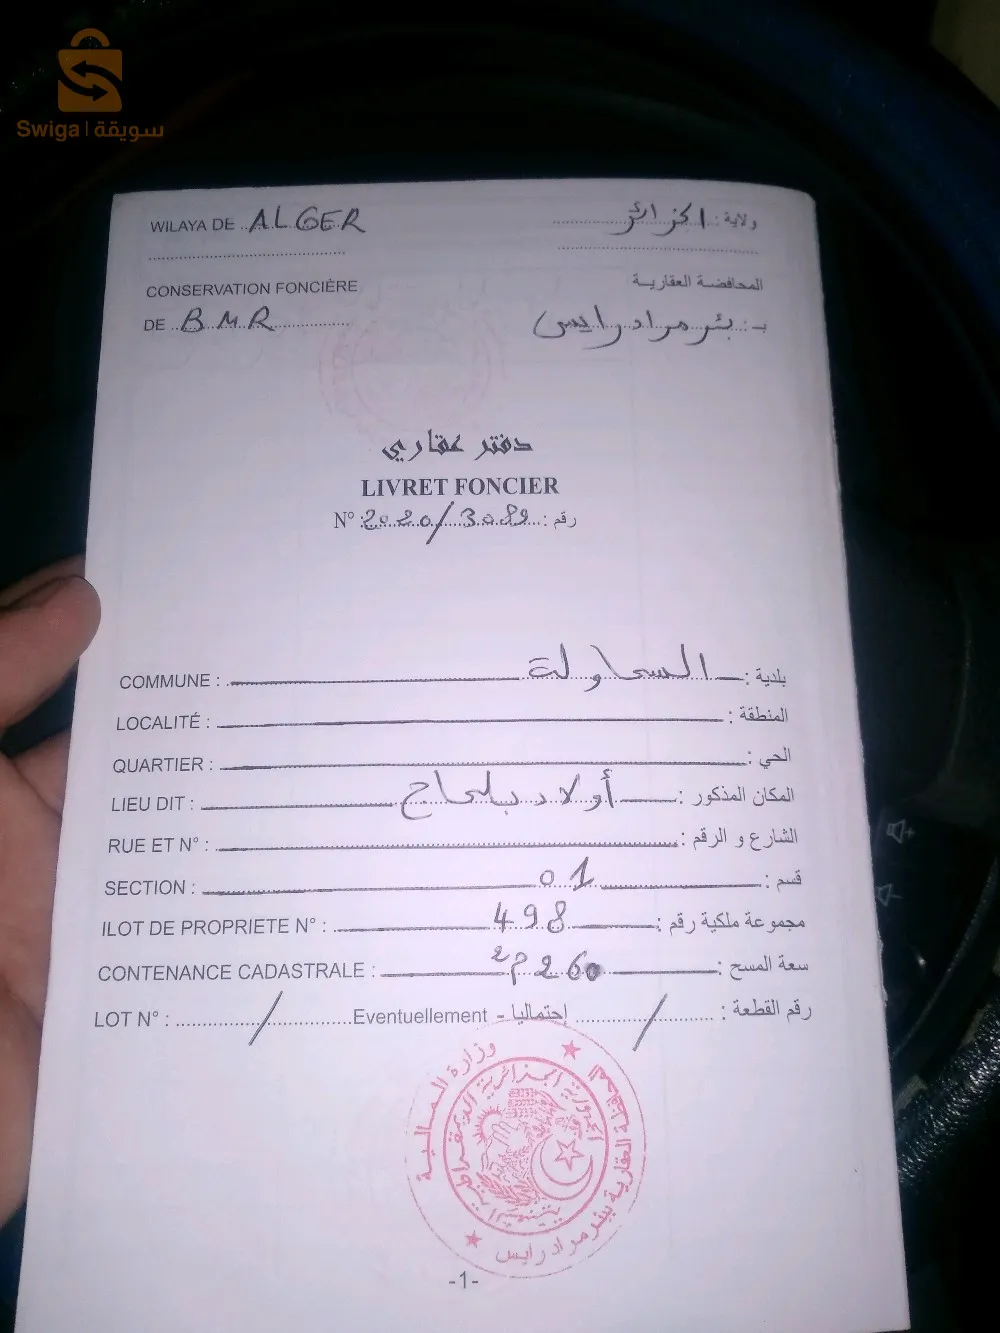 Swiga | سويقة
WILAYA DE ALGER ولاية : الجزائر
CONSERVATION FONCIÈRE المحافضة العقارية
DE BMR بـ : بئر مراد رايس
دفتر عقاري
LIVRET FONCIER
N° : 2020/3089 رقم :
COMMUNE : السحاولة بلدية :
LOCALITÉ : المنطقة :
QUARTIER : الحي :
LIEU DIT : أولاد بلحاج المكان المذكور :
RUE ET N° : الشارع و الرقم :
SECTION : 01 قسم :
ILOT DE PROPRIETE N° : 498 مجموعة ملكية رقم :
CONTENANCE CADASTRALE : 260 م2 سعة المسح :
LOT N° : / Eventuellement - إحتماليا / رقم القطعة :
وزارة المالية
الجمهورية الجزائرية الديمقراطية الشعبية
المحافظة العقارية ببئر مراد رايس
-1-